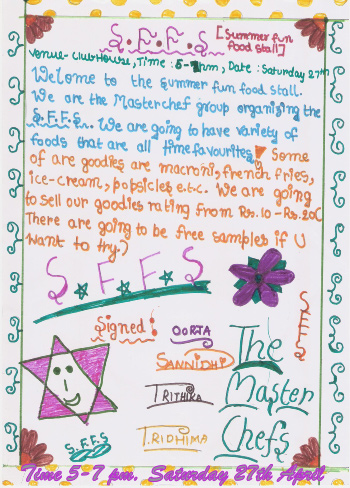 S.F.F.S [Summer fun food stall]
Venue- Clubhouse, Time : 5-7pm, Date : Saturday 27th
Welcome to the summer fun food stall.
We are the Masterchef group organizing the
S.F.F.S.. We are going to have variety of
foods that are all time favourites. Some
of are goodies are macroni, french fries,
ice-cream, popsicles e.t.c. We are going
to sell our goodies rating from Rs.10 - Rs.200
There are going to be free samples if U
want to try:)
S F F S
SFFS
Signed!
OORJA
SANNIDHI
TRITHIKA
T.RIDHIMA
The
Master
Chefs
S.F.F.S
Time 5-7 pm. Saturday 27th April